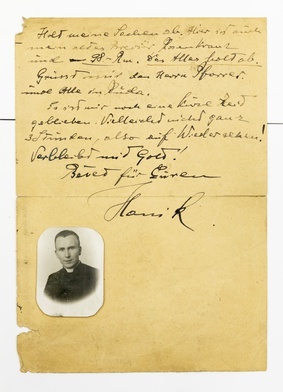 Holt meine Sachen ab. Hier ist auch
mein altes Brevier Rosenkranz
und – 98– Rm. Das Alles holt ab.
Grüsst mir den Herrn Pfarrer
und Alle
Es ist mir noch eine kurze Zeit
geblieben. Vielleicht nicht ganz
3 Stunden, also auf Wiedersehen!
Verbleibt mit Gott!
Betet für Euren